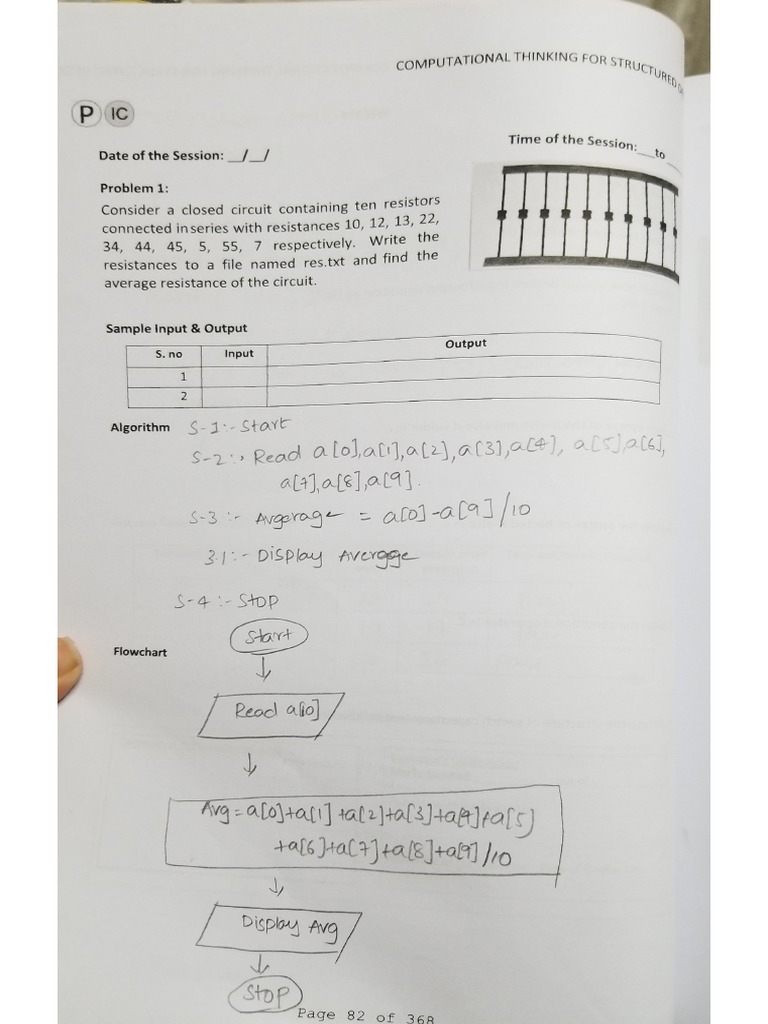 COMPUTATIONAL THINKING FOR STRUCTURED
P IC
Date of the Session: __/__/
Time of the Session:___to
Problem 1:
Consider a closed circuit containing ten resistors
connected in series with resistances 10, 12, 13, 22,
34, 44, 45, 5, 55, 7 respectively. Write the
resistances to a file named res.txt and find the
average resistance of the circuit.
Sample Input & Output
S. no Input Output
1
2
Algorithm S-1:- Start
S-2:- Read a[0],a[1],a[2],a[3],a[4], a[5],a[6],
a[7],a[8],a[9].
S-3:- Avgerage = a[0]-a[9]/10
3.1:- Display Average
S-4:- Stop
Flowchart
Start
Read a[10]
Avg=a[0]+a[1]+a[2]+a[3]+a[4]+a[5]
+a[6]+a[7]+a[8]+a[9]/10
Display Avg
Stop
Page 82 of 368